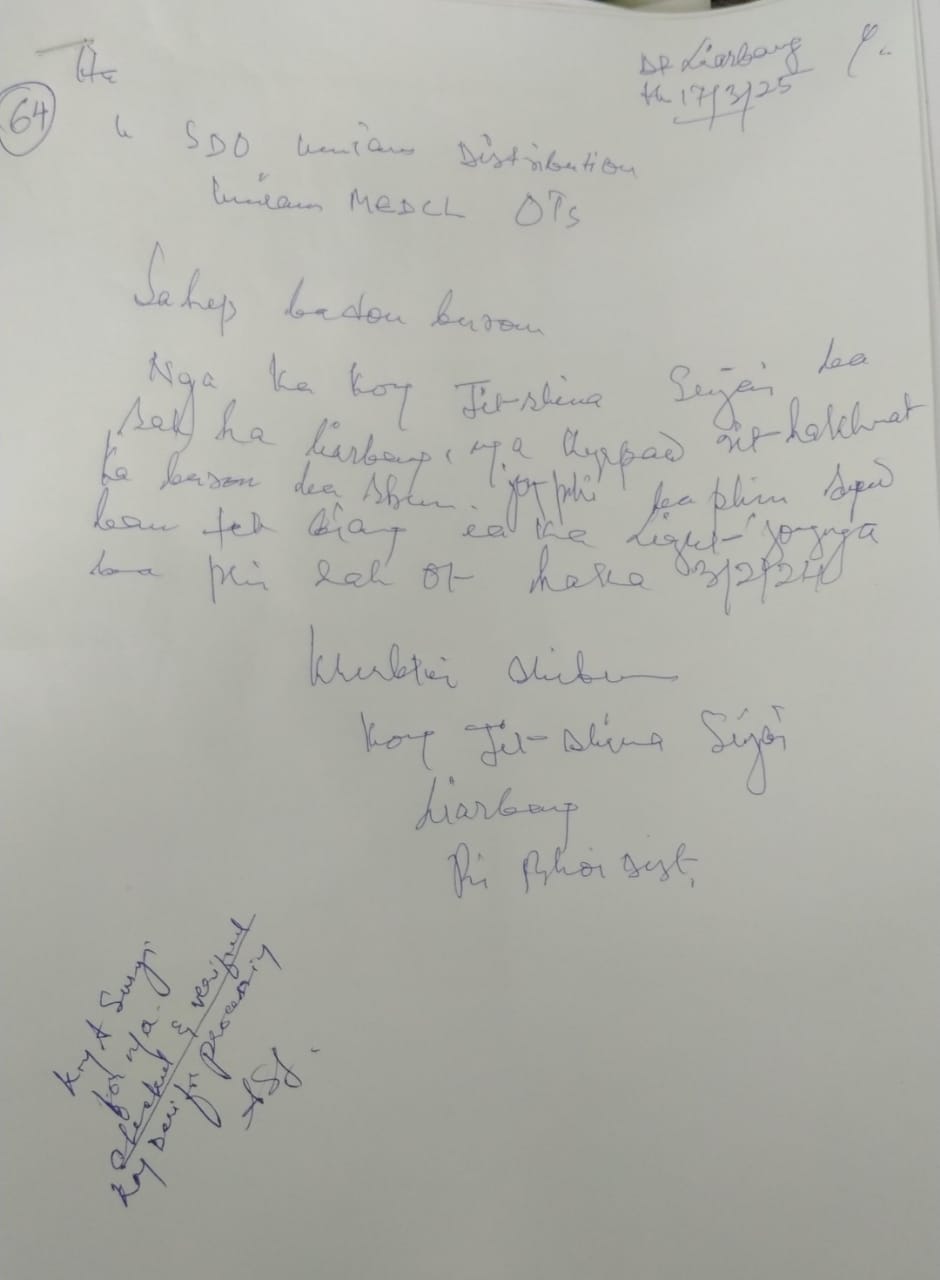 64
Dt Liarbang
th 17/3/25
Ha
u SDO Umiam Distribution
Umiam MeDCL OTs
Sahep badon burom
Nga ka Kong Jit-shina Sujai ba
sah ha Liarbang, nga kyrpad sit hakhmat
ka burom ba shun. jong phi ba phin syad
ban teh biang ia ka Light jongnga
ba phi lah Ot haka 3/2/24
Khublei shibun
Kong Jit-shina Sujai
Liarbang
Ri Bhoi Dist,
Kong A Sungi
for n/a.
Checked & verified
Kong Dei for processing